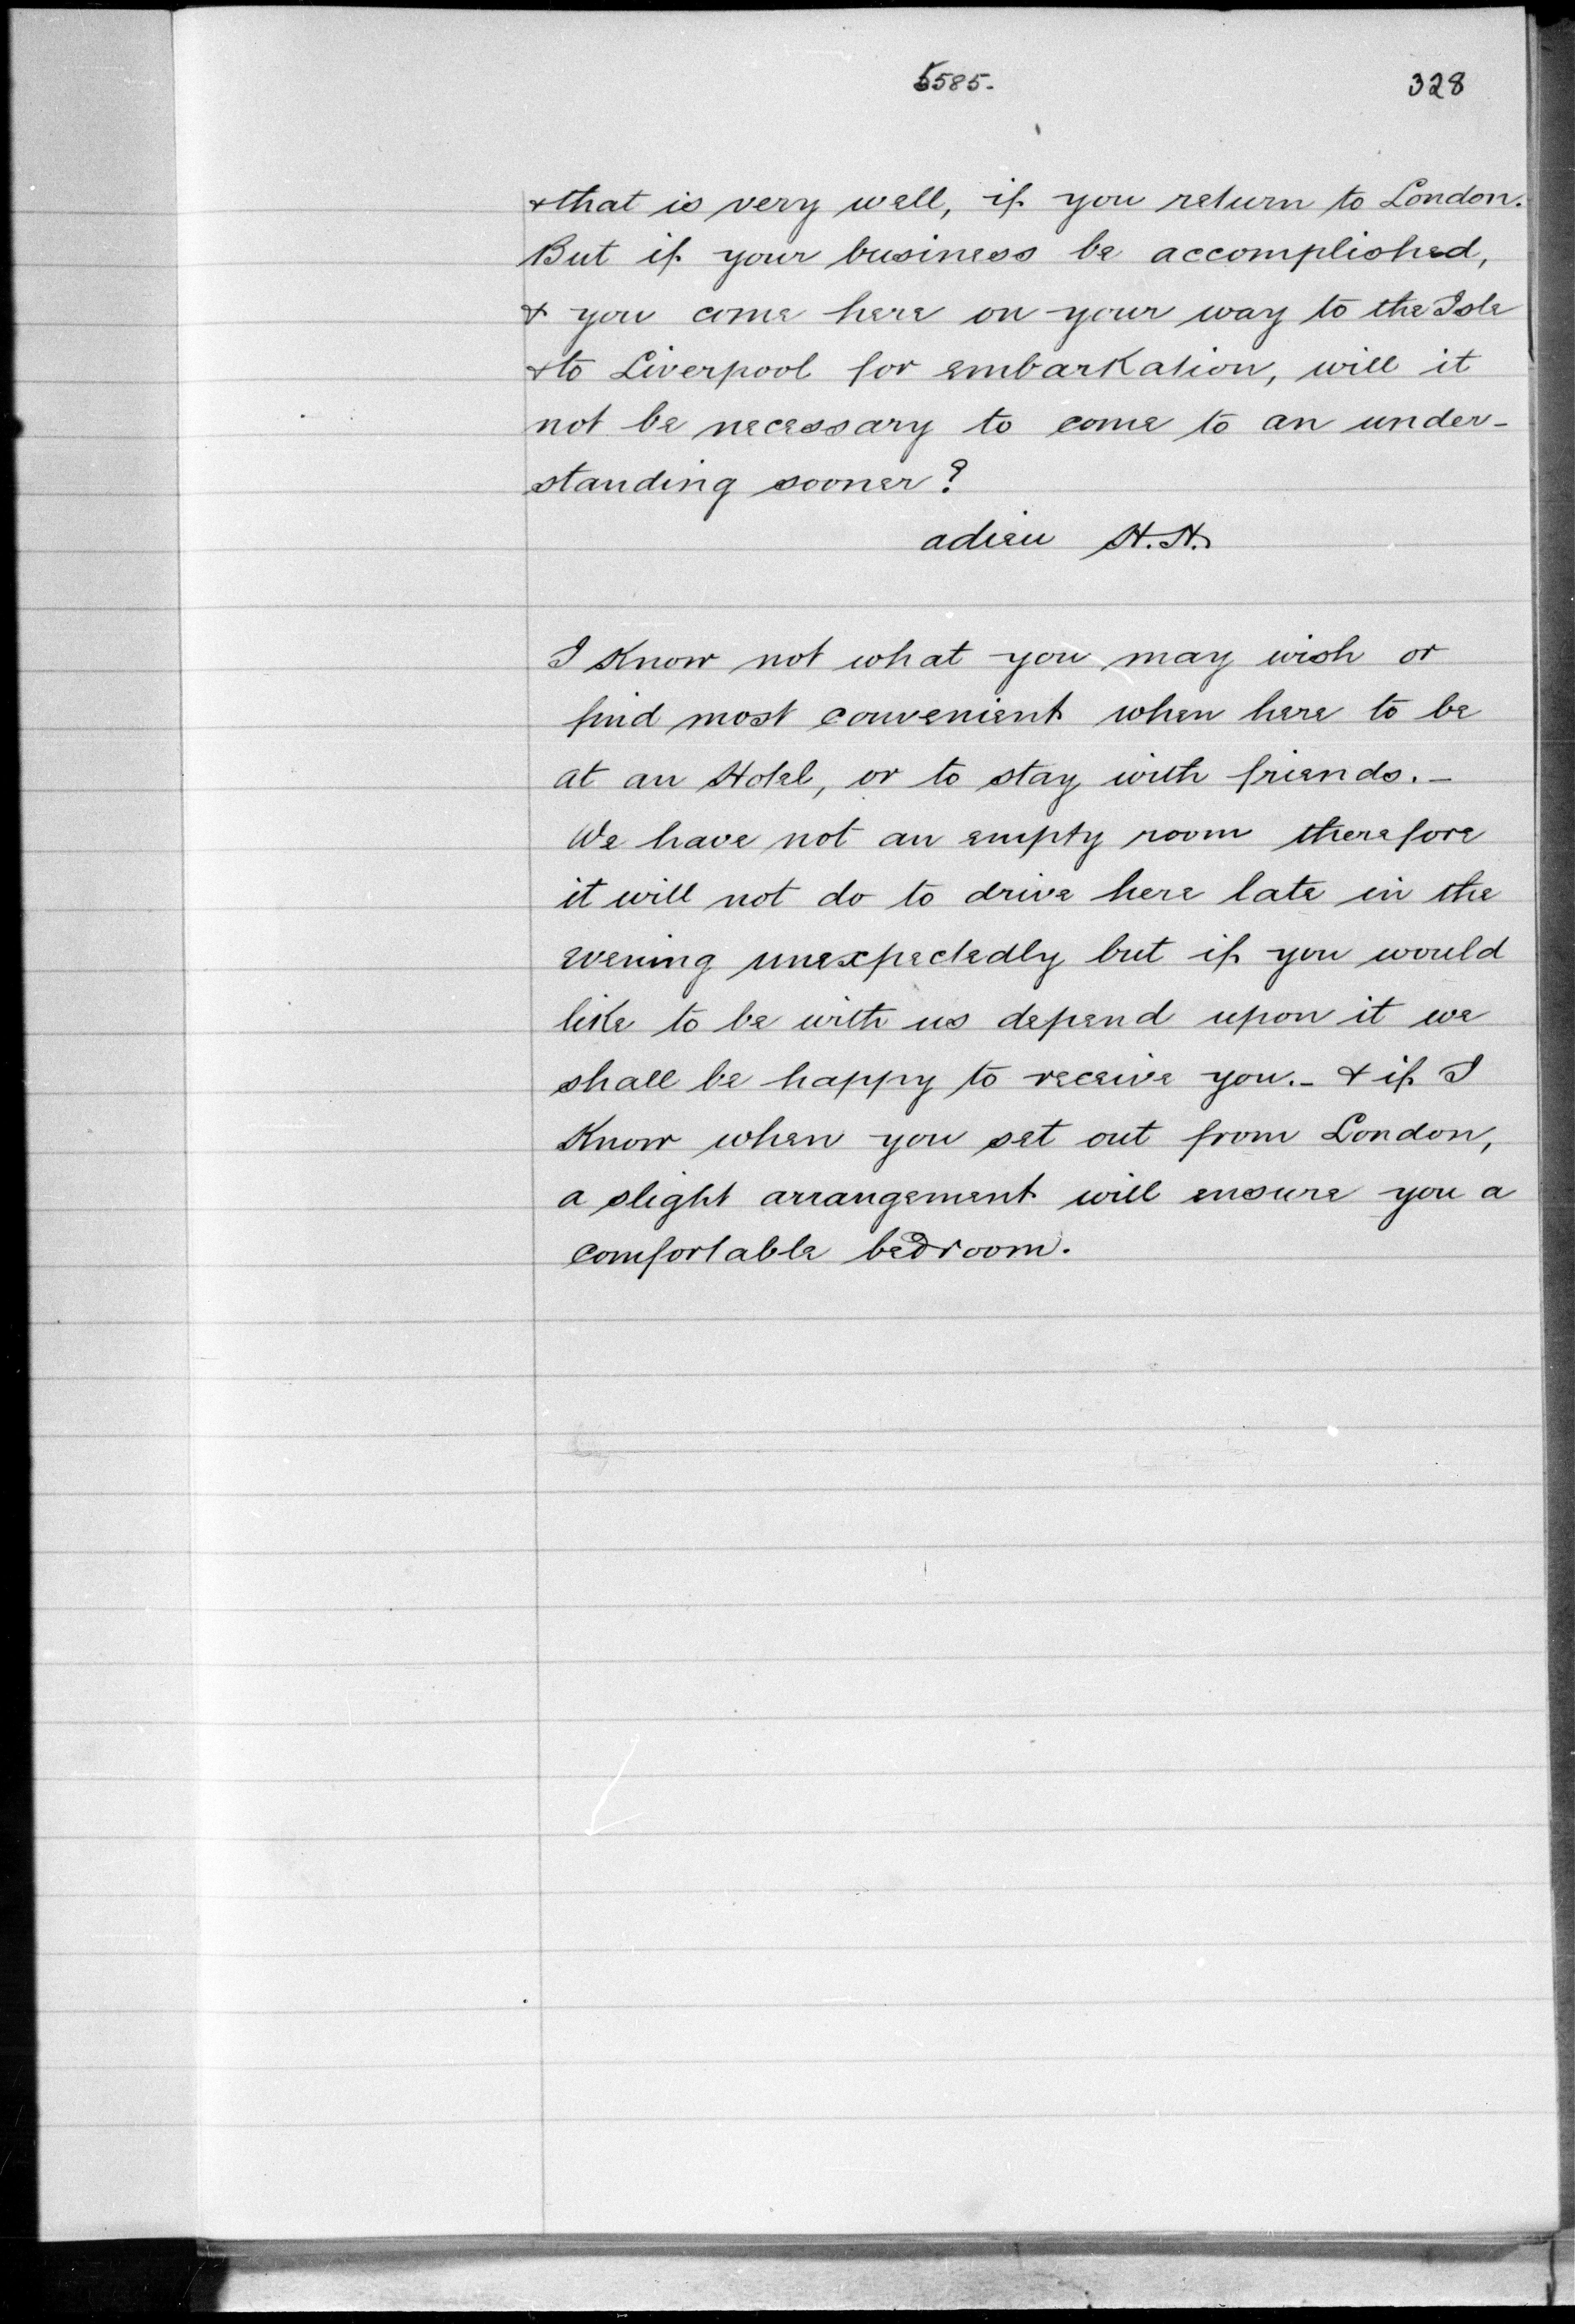 5585.
328
& that is very well, if you return to London.
But if your business be accomplished,
& you come here on your way to the Isle
& to Liverpool for embarkation, will it
not be necessary to come to an under-
standing sooner?
adieu H.H.
I know not what you may wish or
find most convenient when here to be
at an Hotel, or to stay with friends. —
We have not an empty room therefore
it will not do to drive here late in the
evening unexpectedly but if you would
like to be with us depend upon it we
shall be happy to receive you. — & if I
know when you set out from London,
a slight arrangement will ensure you a
comfortable bedroom.